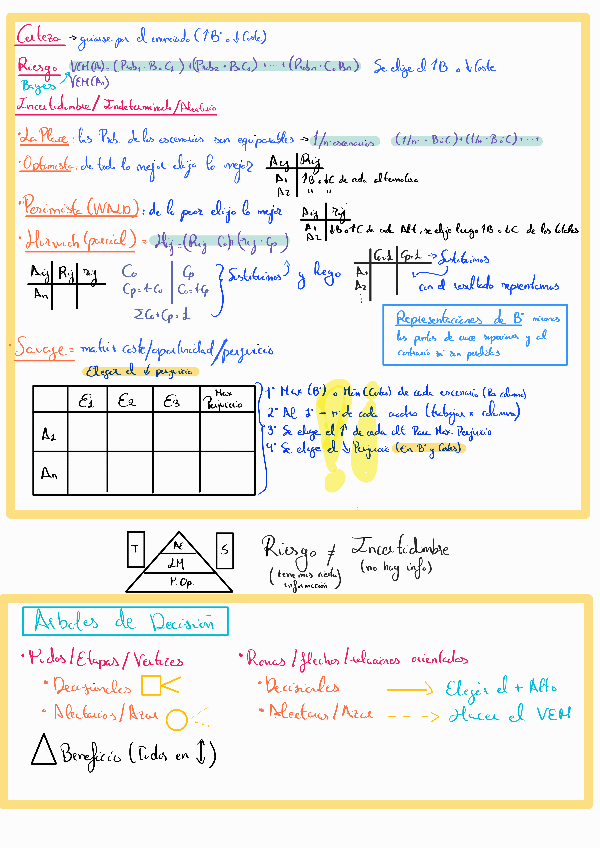 Certeza → guiarse por el enunciado (↑Bº o ↓Coste)
Riesgo VEM(A1) = (Prob1 · B o C1) + (Prob2 · B o C2) + ... + (Probn · C o Bn) Se elige el ↑B o ↓Coste
Bayes VEM(An)
Incertidumbre / Indeterminado / Aleatorio
· La Place: las Prob. de los escenarios son equiparables → 1/nº escenarios (1/n · B o C) + (1/n · B o C) + ...
· Optimista: de todo lo mejor elijo lo mejor
Aij Rij
A1 ↑B o ↓C de cada alternativa
A2 " "
· Pesimista (WALD): de lo peor elijo lo mejor
Aij rij
A1 ↓B o ↑C de cada Alt, se elije luego ↑B o ↓C de los totales
A2
· Hurwich (parcial) = Hij = (Rij · Co) + (rij · Cp)
Aij Rij rij
An
Co Cp
Cp = 1 - Co Co = 1 - Cp
ΣCo + Cp = 1
Sustituimos y luego
Co=1 Cp=1 → Sustituimos
A1
A2
con el resultado representamos
Representaciones de Bº miramos
los puntos de cruce superiores y al
contrario si son perdidas
· Savage = matriz coste/oportunidad/perjuicio
Elegir el ↓ perjuicio
E1 E2 E3 Max Perjuicio
A1
An
1º Max (Bº) o Min (Costes) de cada escenario (la columna)
2º Al 1º - nº de cada cuadro (trabajar x columna)
3º Se elige el ↑ de cada alt Para Max. Perjuicio
4º Se elige el ↓ Perjuicio (en Bº y Costes)
T S
LM
M. Op.
Riesgo ≠ Incertidumbre
(tenemos cierta información) (no hay info)
Arboles de Decisión
· Nodos / Etapas / Vertices
· Decisionales
· Aleatorios / Azar
Beneficio (Todos en ↕)
· Ramas / flechas / relaciones orientadas
· Decisionales → Elegir el + Alto
· Aleatorias / Azar → Hacer el VEM